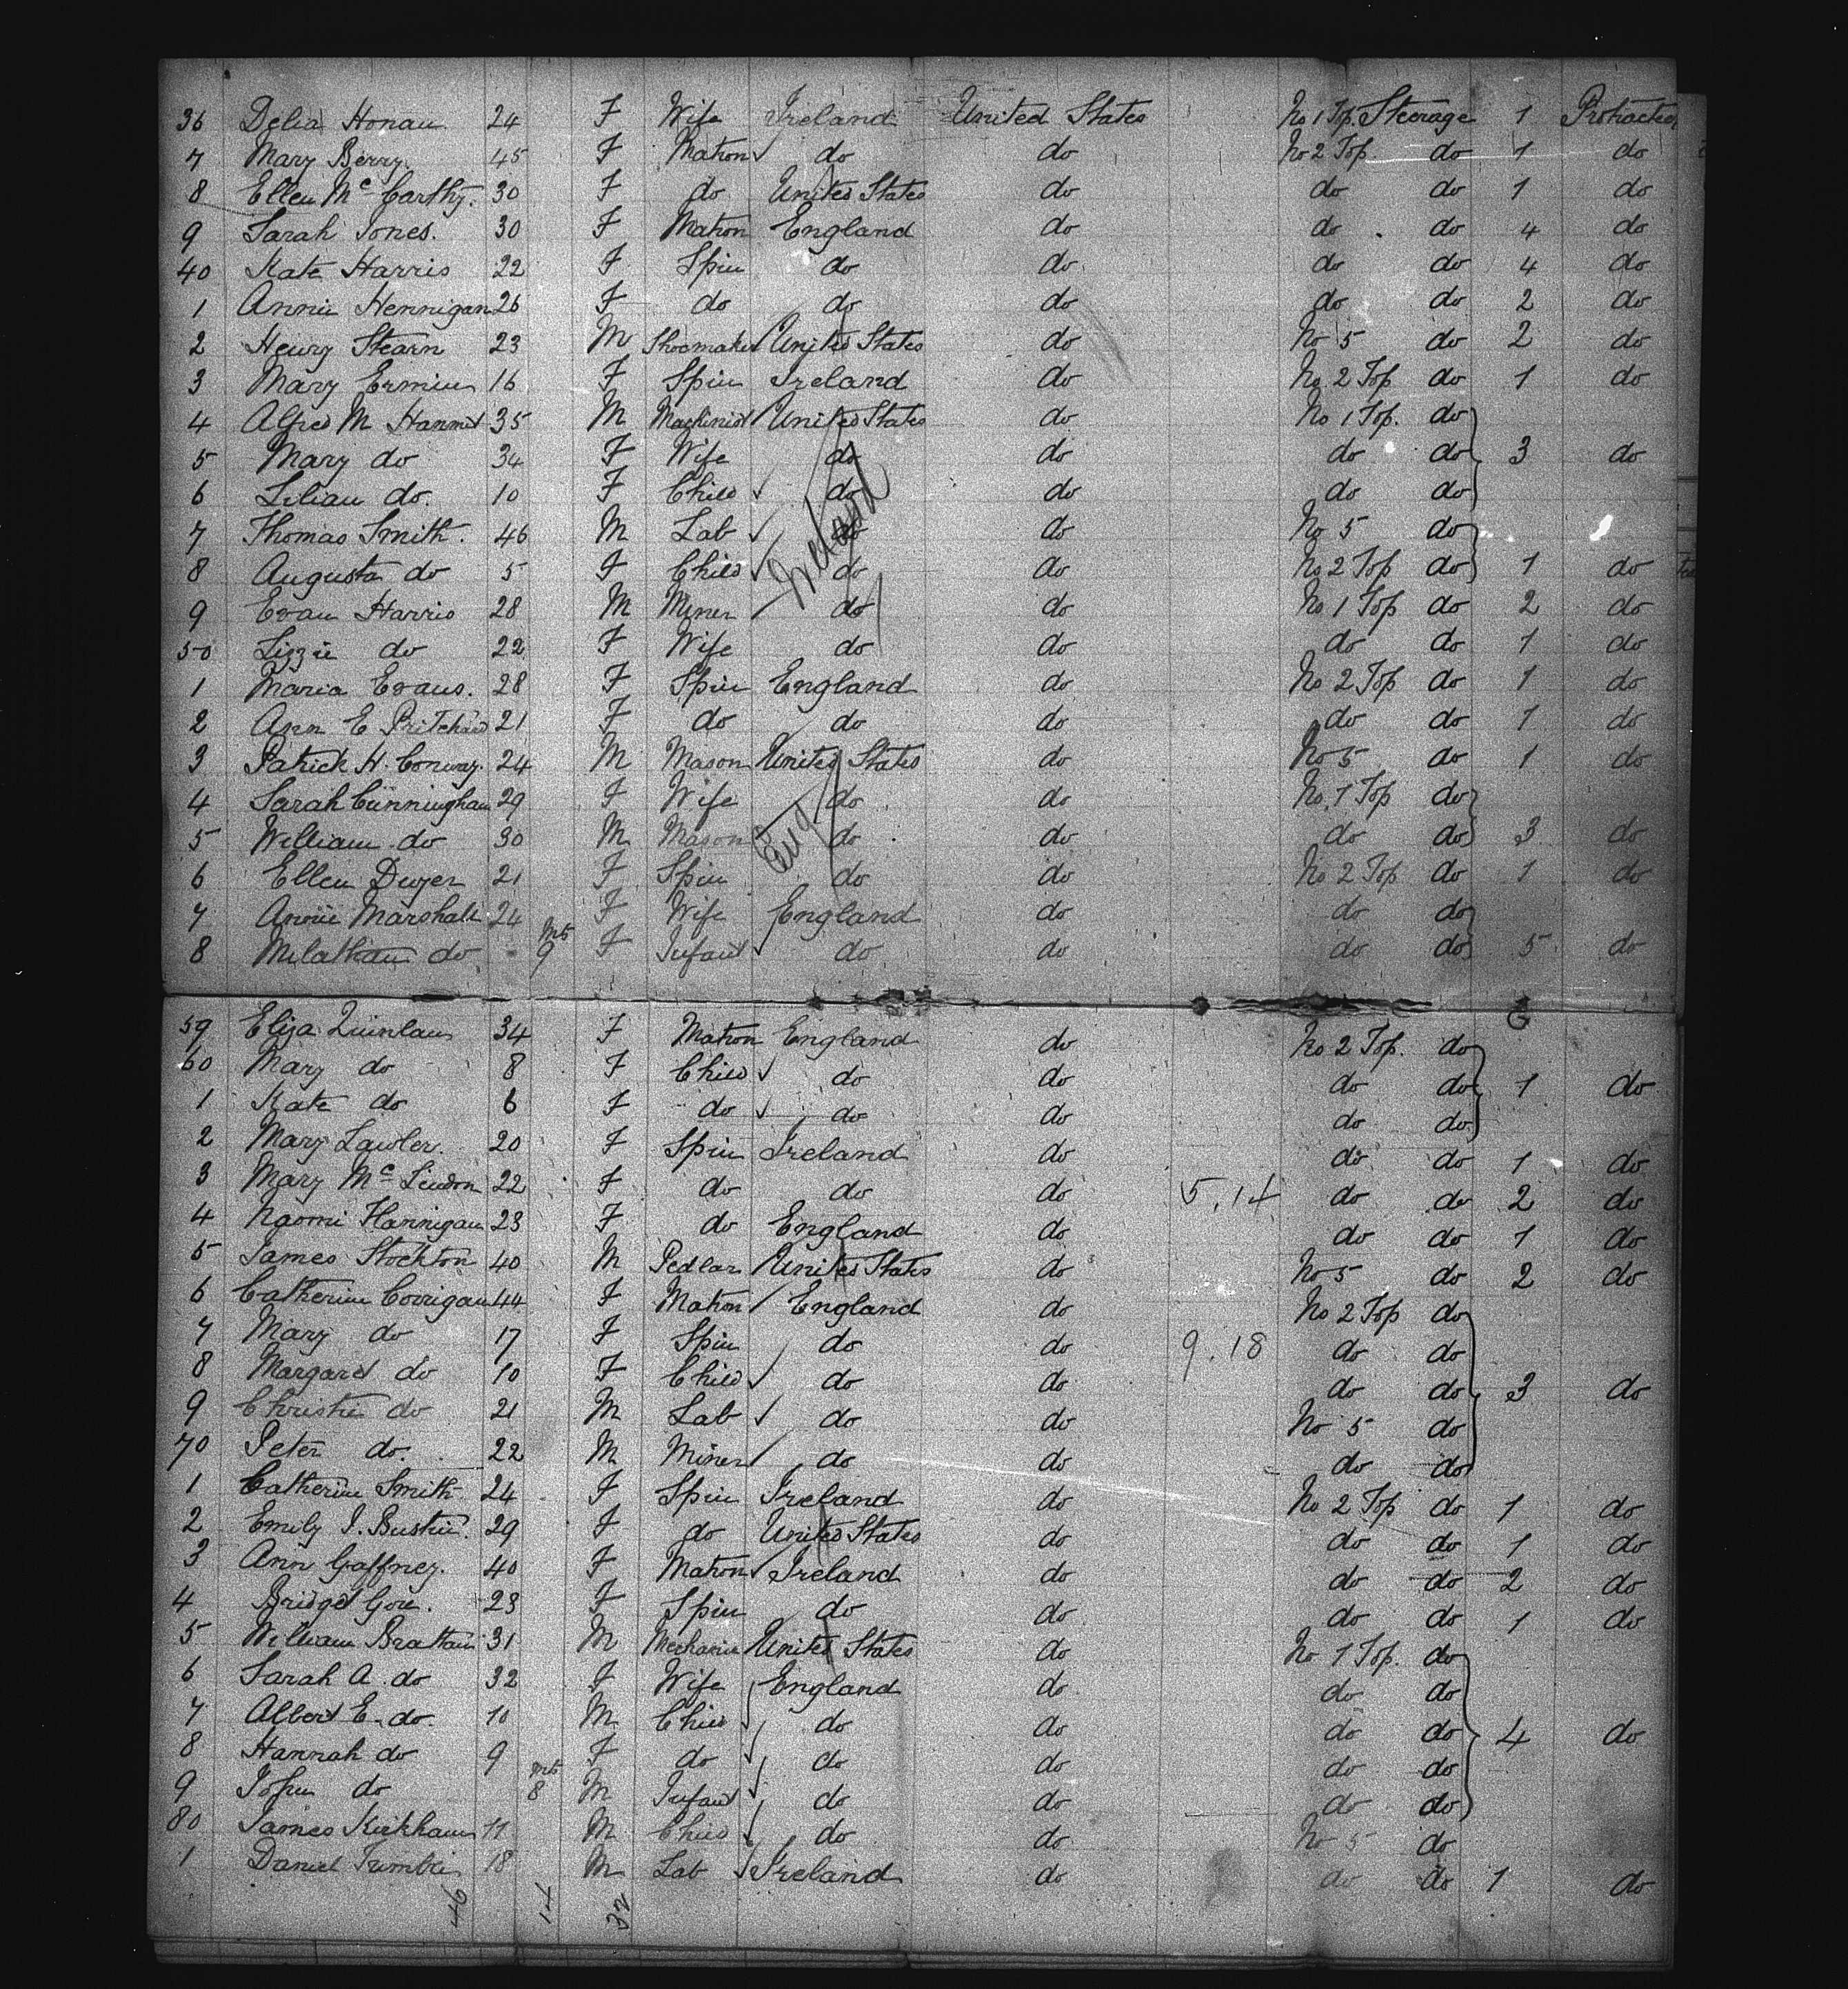 36 Delia Honan 24 F Wife Ireland United States No 1 Top. Steerage 1 Protracted
7 Mary Berry. 45 F Matron do do No 2 Top do 1 do
8 Ellen Mc Carthy. 30 F do United States do do do 1 do
9 Sarah Jones. 30 F Matron England do do do 4 do
40 Kate Harris 22 F Spin do do do do 4 do
1 Annie Hennigan 26 F do do do do do 2 do
2 Henry Stearn 23 M Shoemaker United States do No 5 do 2 do
3 Mary 16 F Spin Ireland do No 2 Top do 1 do
4 Alfred M 35 M Machinist United States do No 1 Top. do
5 Mary do 34 F Wife do do do do 3 do
6 Lilian do. 10 F Child do do do do
7 Thomas Smith. 46 M Lab do do No 5 do
Ireland
8 Augusta do 5 F Child do do No 2 Top do 1 do
9 Evan Harris 28 M Miner do do No 1 Top do 2 do
50 Lizzie do 22 F Wife do do do do 1 do
1 Maria Evans. 28 F Spin England do No 2 Top do 1 do
2 Ann E Pritchard 21 F do do do do do 1 do
3 Patrick H. Conway. 24 M Mason United States do No 5 do 1 do
4 Sarah Cunningham 29 F Wife do do No. 1 Top do
5 William do 30 M Mason do do do do 3 do
Eng
6 Ellen Dwyer 21 F Spin do do No 2 Top do 1 do
7 Annie Marshall 24 F Wife England do do do
8 do Mts 9 F Infant do do do do 5 do
59 Eliza Quinlan 34 F Matron England do No 2 Top. do
60 Mary do 8 F Child do do do do 1 do
1 Kate do 6 F do do do do do
2 Mary Lawler. 20 F Spin Ireland do do do 1 do
3 Mary Mc 22 F do do do 5.14 do do 2 do
4 Naomi Hannigan 23 F do England do do do 1 do
5 James Stockton 40 M Pedlar United States do No 5 do 2 do
6 Catherine Corrigan 44 F Matron England do No 2 Top do
7 Mary do 17 F Spin do do 9.18 do do
8 Margaret do 10 F Child do do do do 3 do
9 Christie do 21 M Lab do do No 5 do
70 Peter do. 22 M Miner do do do do
1 Catherine Smith 24 F Spin Ireland do No 2 Top do 1 do
2 Emily J. 29 F do United States do do do 1 do
3 Ann Gaffney. 40 F Matron Ireland do do do 2 do
4 Bridget Gore. 23 F Spin do do do do 1 do
5 William Brattain 31 M Mechanic United States do No 1 Top. do
6 Sarah A. do 32 F Wife England do do do
7 Albert E. do. 10 M Child do do do do 4 do
8 Hannah do 9 F do do do do do
9 John do Mts 8 M Infant do do do do
80 James Kirkham 11 M Child do do No 5 do
1 Daniel 18 M Lab Ireland do do do 1 do
46 14 32